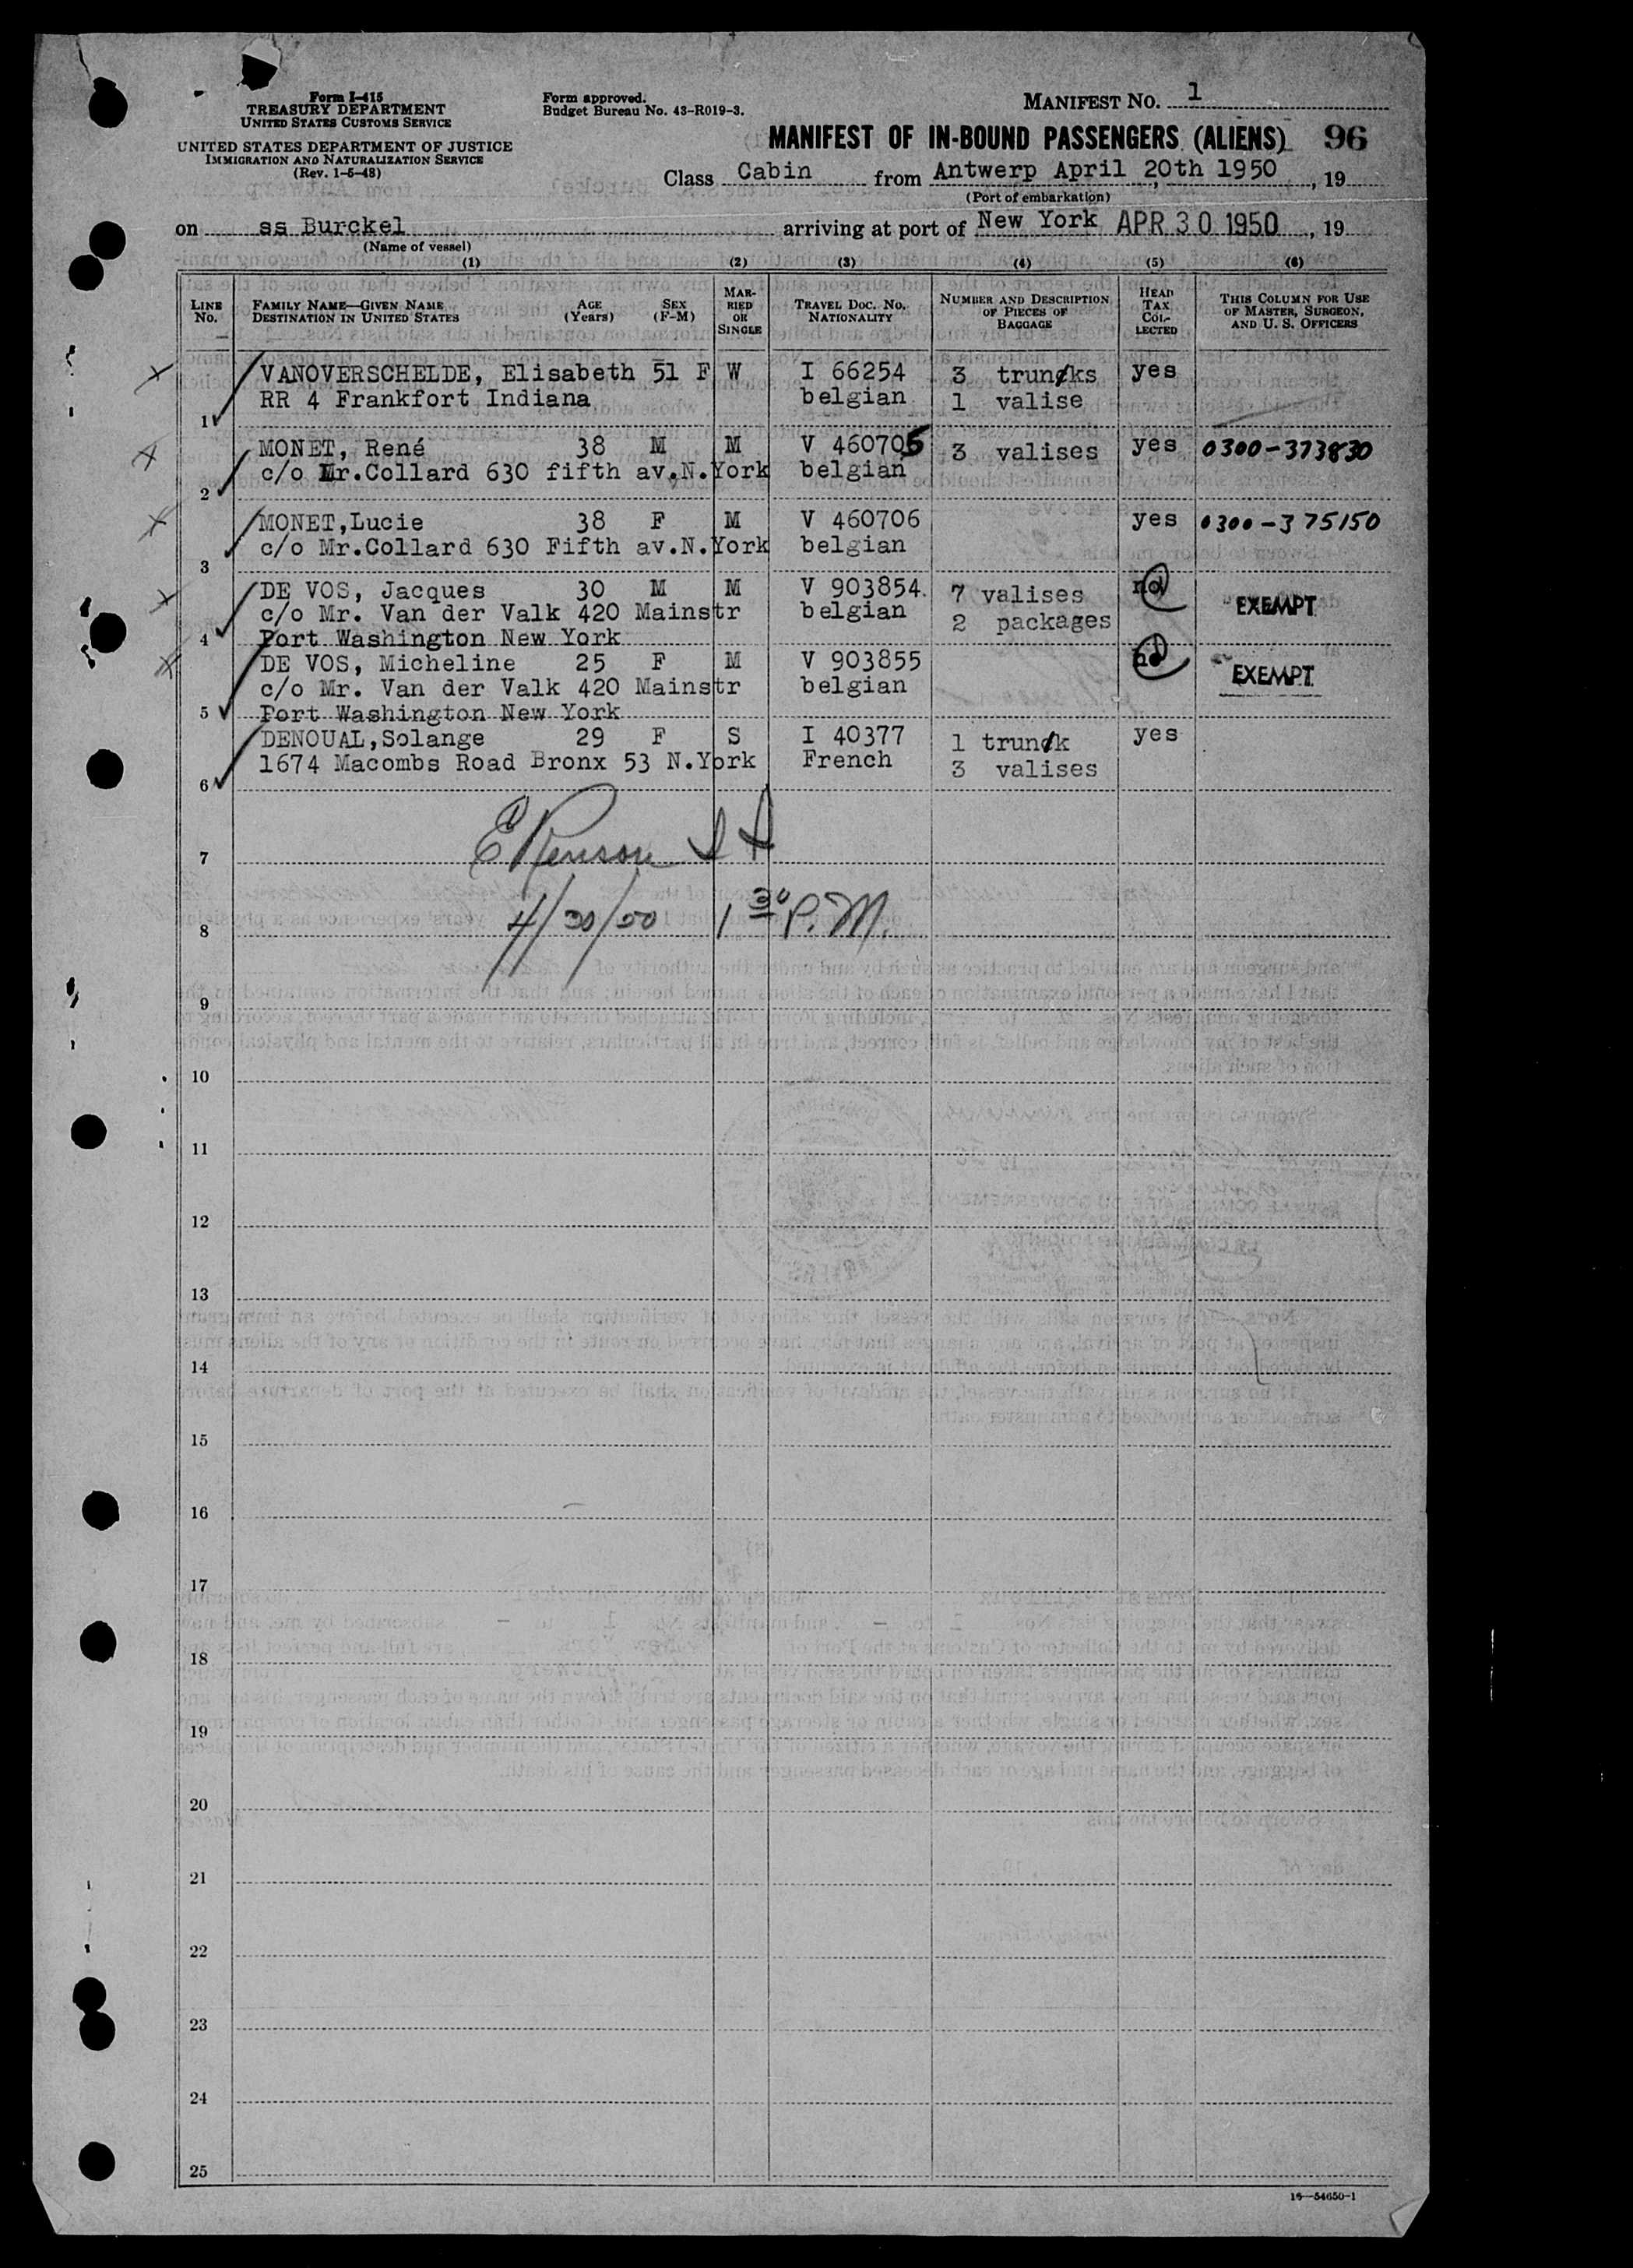 Form I-415
TREASURY DEPARTMENT
UNITED STATES CUSTOMS SERVICE
UNITED STATES DEPARTMENT OF JUSTICE
IMMIGRATION AND NATURALIZATION SERVICE
(Rev. 1-5-48)
Form approved.
Budget Bureau No. 43-R019-3.
MANIFEST NO. 1
MANIFEST OF IN-BOUND PASSENGERS (ALIENS) 96
Class Cabin from Antwerp April 20th 1950, 19
(Port of embarkation)
on ss Burckel arriving at port of New York APR 30 1950, 19
(Name of vessel)
(1) (2) (3) (4) (5) (6)
LINE No. FAMILY NAME—GIVEN NAME DESTINATION IN UNITED STATES AGE (Years) SEX (F-M) MARRIED OR SINGLE TRAVEL DOC. NO. NATIONALITY NUMBER AND DESCRIPTION OF PIECES OF BAGGAGE HEAD TAX COLLECTED THIS COLUMN FOR USE OF MASTER, SURGEON, AND U. S. OFFICERS
VANOVERSCHELDE, Elisabeth 51 F W I 66254 3 trunks yes
1 RR 4 Frankfort Indiana belgian 1 valise
MONET, René 38 M M V 460705 3 valises yes 0300-373830
2 c/o Mr.Collard 630 fifth av.N.York belgian
MONET,Lucie 38 F M V 460706 yes 0300-375150
3 c/o Mr.Collard 630 Fifth av.N.York belgian
DE VOS, Jacques 30 M M V 903854. 7 valises no EXEMPT
c/o Mr. Van der Valk 420 Mainstr belgian 2 packages
4 Port Washington New York
DE VOS, Micheline 25 F M V 903855 no EXEMPT
c/o Mr. Van der Valk 420 Mainstr belgian
5 Port Washington New York
DENOUAL,Solange 29 F S I 40377 1 trunk yes
6 1674 Macombs Road Bronx 53 N.York French 3 valises
7
8 4/30/50 1 30 P.M.
9
10
11
12
13
14
15
16
17
18
19
20
21
22
23
24
25
16—54650-1